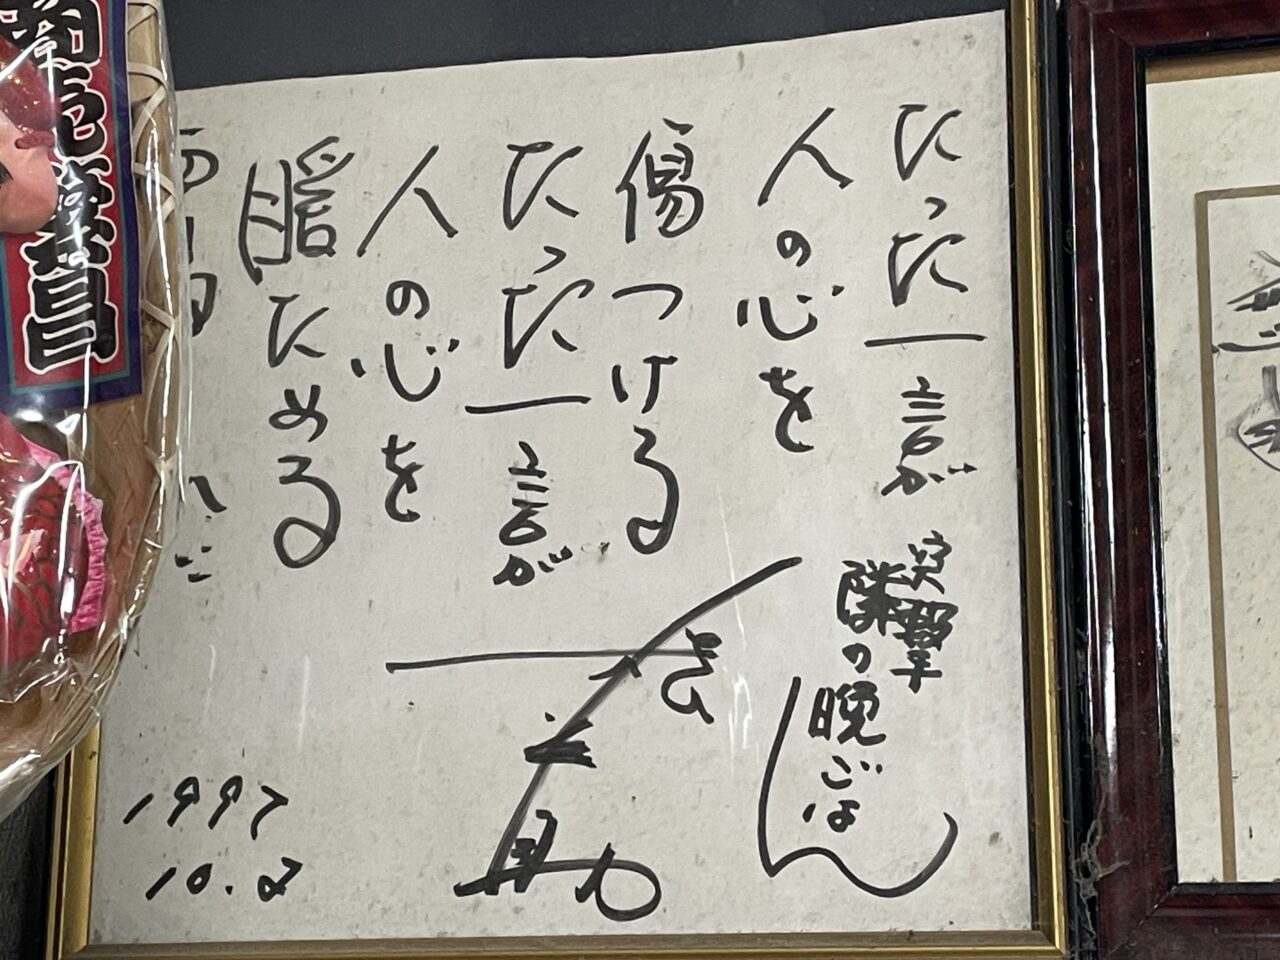 たった一言が
人の心を
傷つける
たった一言が
人の心を
暖ためる
突撃
隣の晩ごはん
1997
10.2
商売繁昌